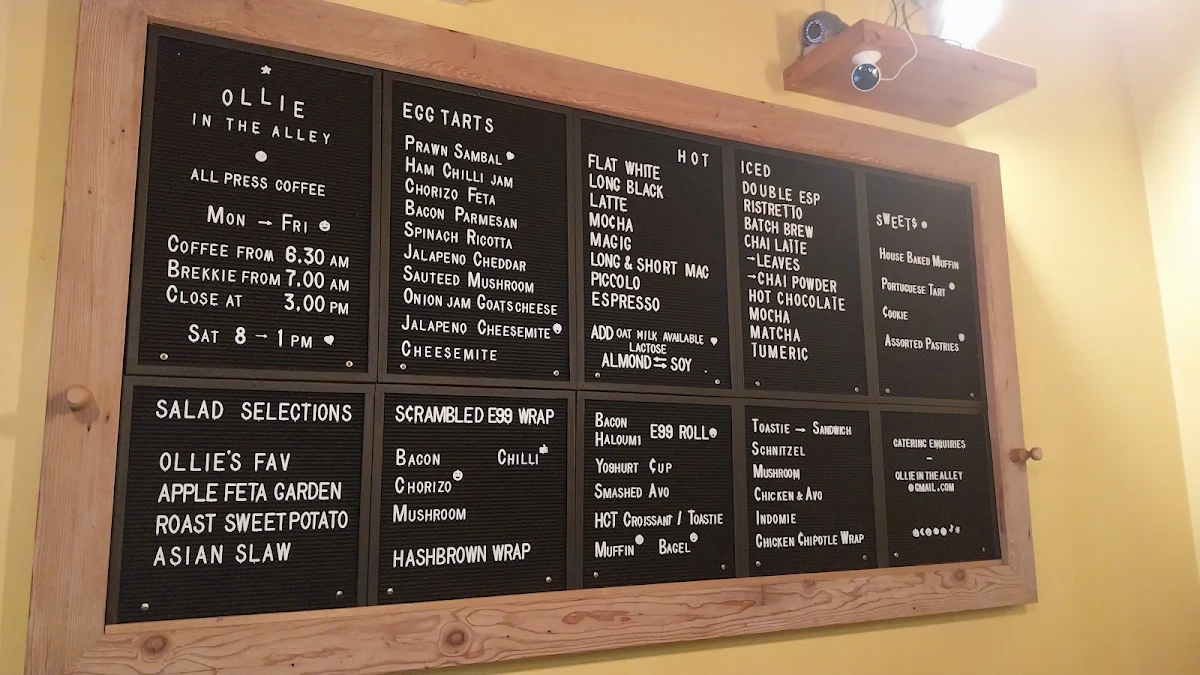 OLLIE
IN THE ALLEY
ALL PRESS COFFEE
MON → FRI
COFFEE FROM 6.30 AM
BREKKIE FROM 7.00 AM
CLOSE AT 3.00 PM
SAT 8 → 1 PM
EGG TARTS
PRAWN SAMBAL
HAM CHILLI JAM
CHORIZO FETA
BACON PARMESAN
SPINACH RICOTTA
JALAPENO CHEDDAR
SAUTEED MUSHROOM
ONION JAM GOATS CHEESE
JALAPENO CHEESEMITE
CHEESEMITE
HOT
FLAT WHITE
LONG BLACK
LATTE
MOCHA
MAGIC
LONG & SHORT MAC
PICCOLO
ESPRESSO
ADD OAT MILK AVAILABLE
LACTOSE
ALMOND ⇆ SOY
ICED
DOUBLE ESP
RISTRETTO
BATCH BREW
CHAI LATTE
→LEAVES
→CHAI POWDER
HOT CHOCOLATE
MOCHA
MATCHA
TUMERIC
SWEET$
HOUSE BAKED MUFFIN
PORTUGUESE TART
COOKIE
ASSORTED PASTRIES
SALAD SELECTIONS
OLLIE'S FAV
APPLE FETA GARDEN
ROAST SWEET POTATO
ASIAN SLAW
SCRAMBLED E99 WRAP
BACON CHILLI
CHORIZO
MUSHROOM
HASHBROWN WRAP
BACON
HALOUMI E99 ROLL
YOGHURT CUP
SMASHED AVO
HCT CROISSANT / TOASTIE
MUFFIN BAGEL
TOASTIE → SANDWICH
SCHNITZEL
MUSHROOM
CHICKEN & AVO
INDOMIE
CHICKEN CHIPOTLE WRAP
CATERING ENQUIRIES
–
OLLIEINTHEALLEY
@GMAIL.COM